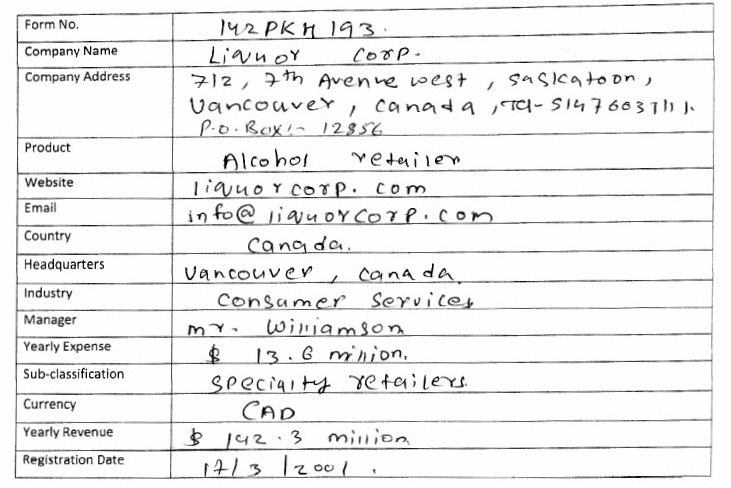 Form No. 142PKH193.
Company Name Liquor Corp.
Company Address 712, 7th Avenue west, Saskatoon,
Vancouver, Canada, Tel- 5147603711.
P.O. Box:- 12856
Product Alcohol retailer
Website liquorcorp.com
Email info@liquorcorp.com
Country Canada.
Headquarters Vancouver, Canada
Industry Consumer Services
Manager mr. Williamson
Yearly Expense $ 13.6 million.
Sub-classification Specialty retailers.
Currency CAD
Yearly Revenue $ 142.3 million
Registration Date 17/3/2001.